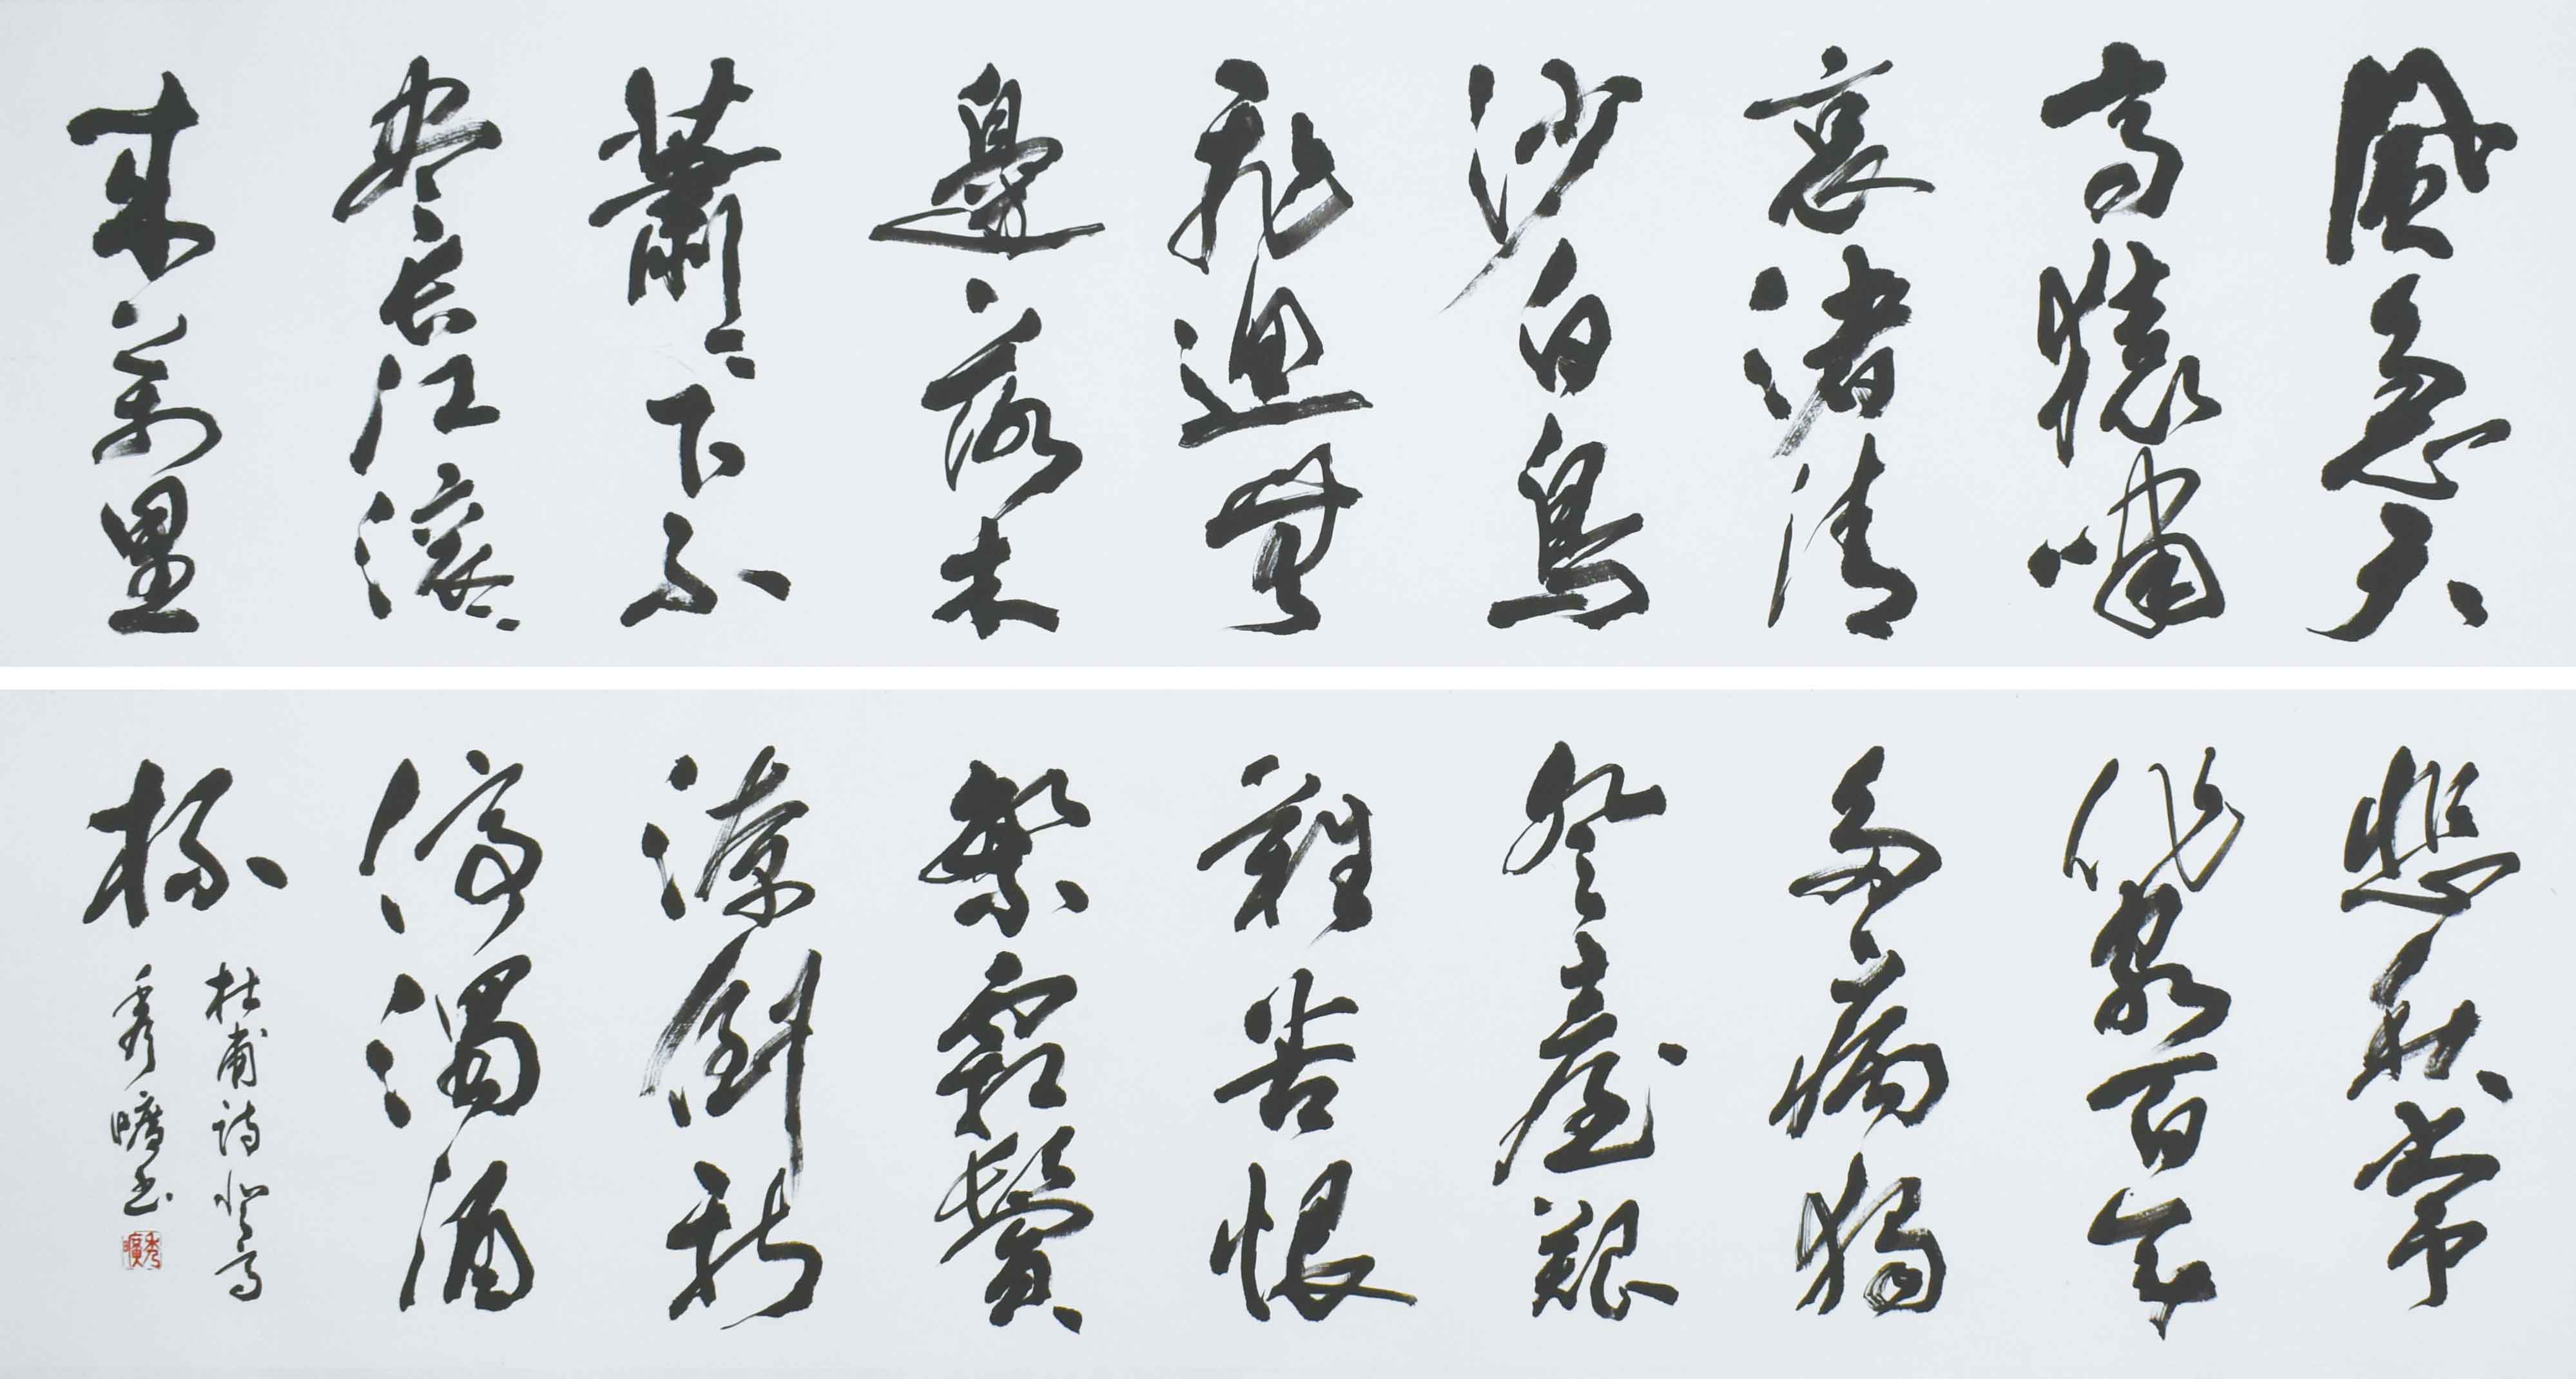 風急天
高猿嘯
哀渚清
沙白鳥
飛迴無
邊落木
蕭〻下不
尽长江滾〻
来萬里
悲秋常
作客百年
多病獨
登臺艱
難苦恨
繁霜鬢
潦倒新
停濁酒
杯
杜甫詩登高
秀曠书
秀曠